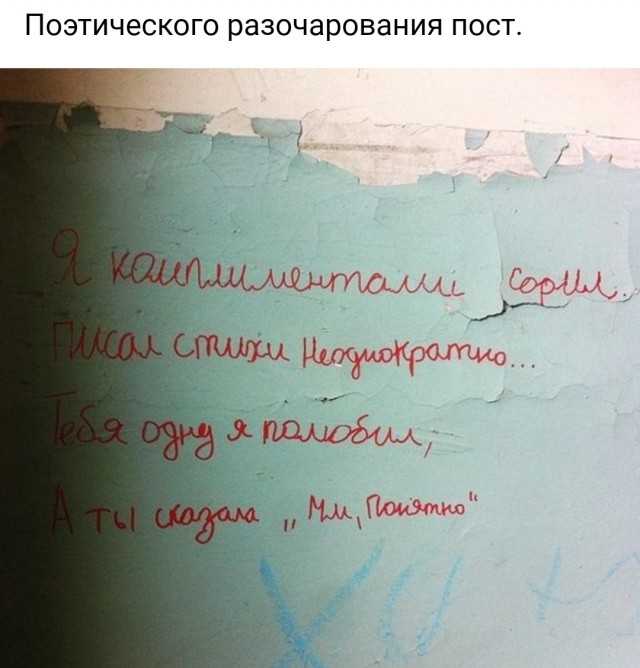 Поэтического разочарования пост.
Я комплиментами сорил..
Писал стихи Неоднократно...
Тебя одну я полюбил,
А ты сказала „Мм, Понятно"